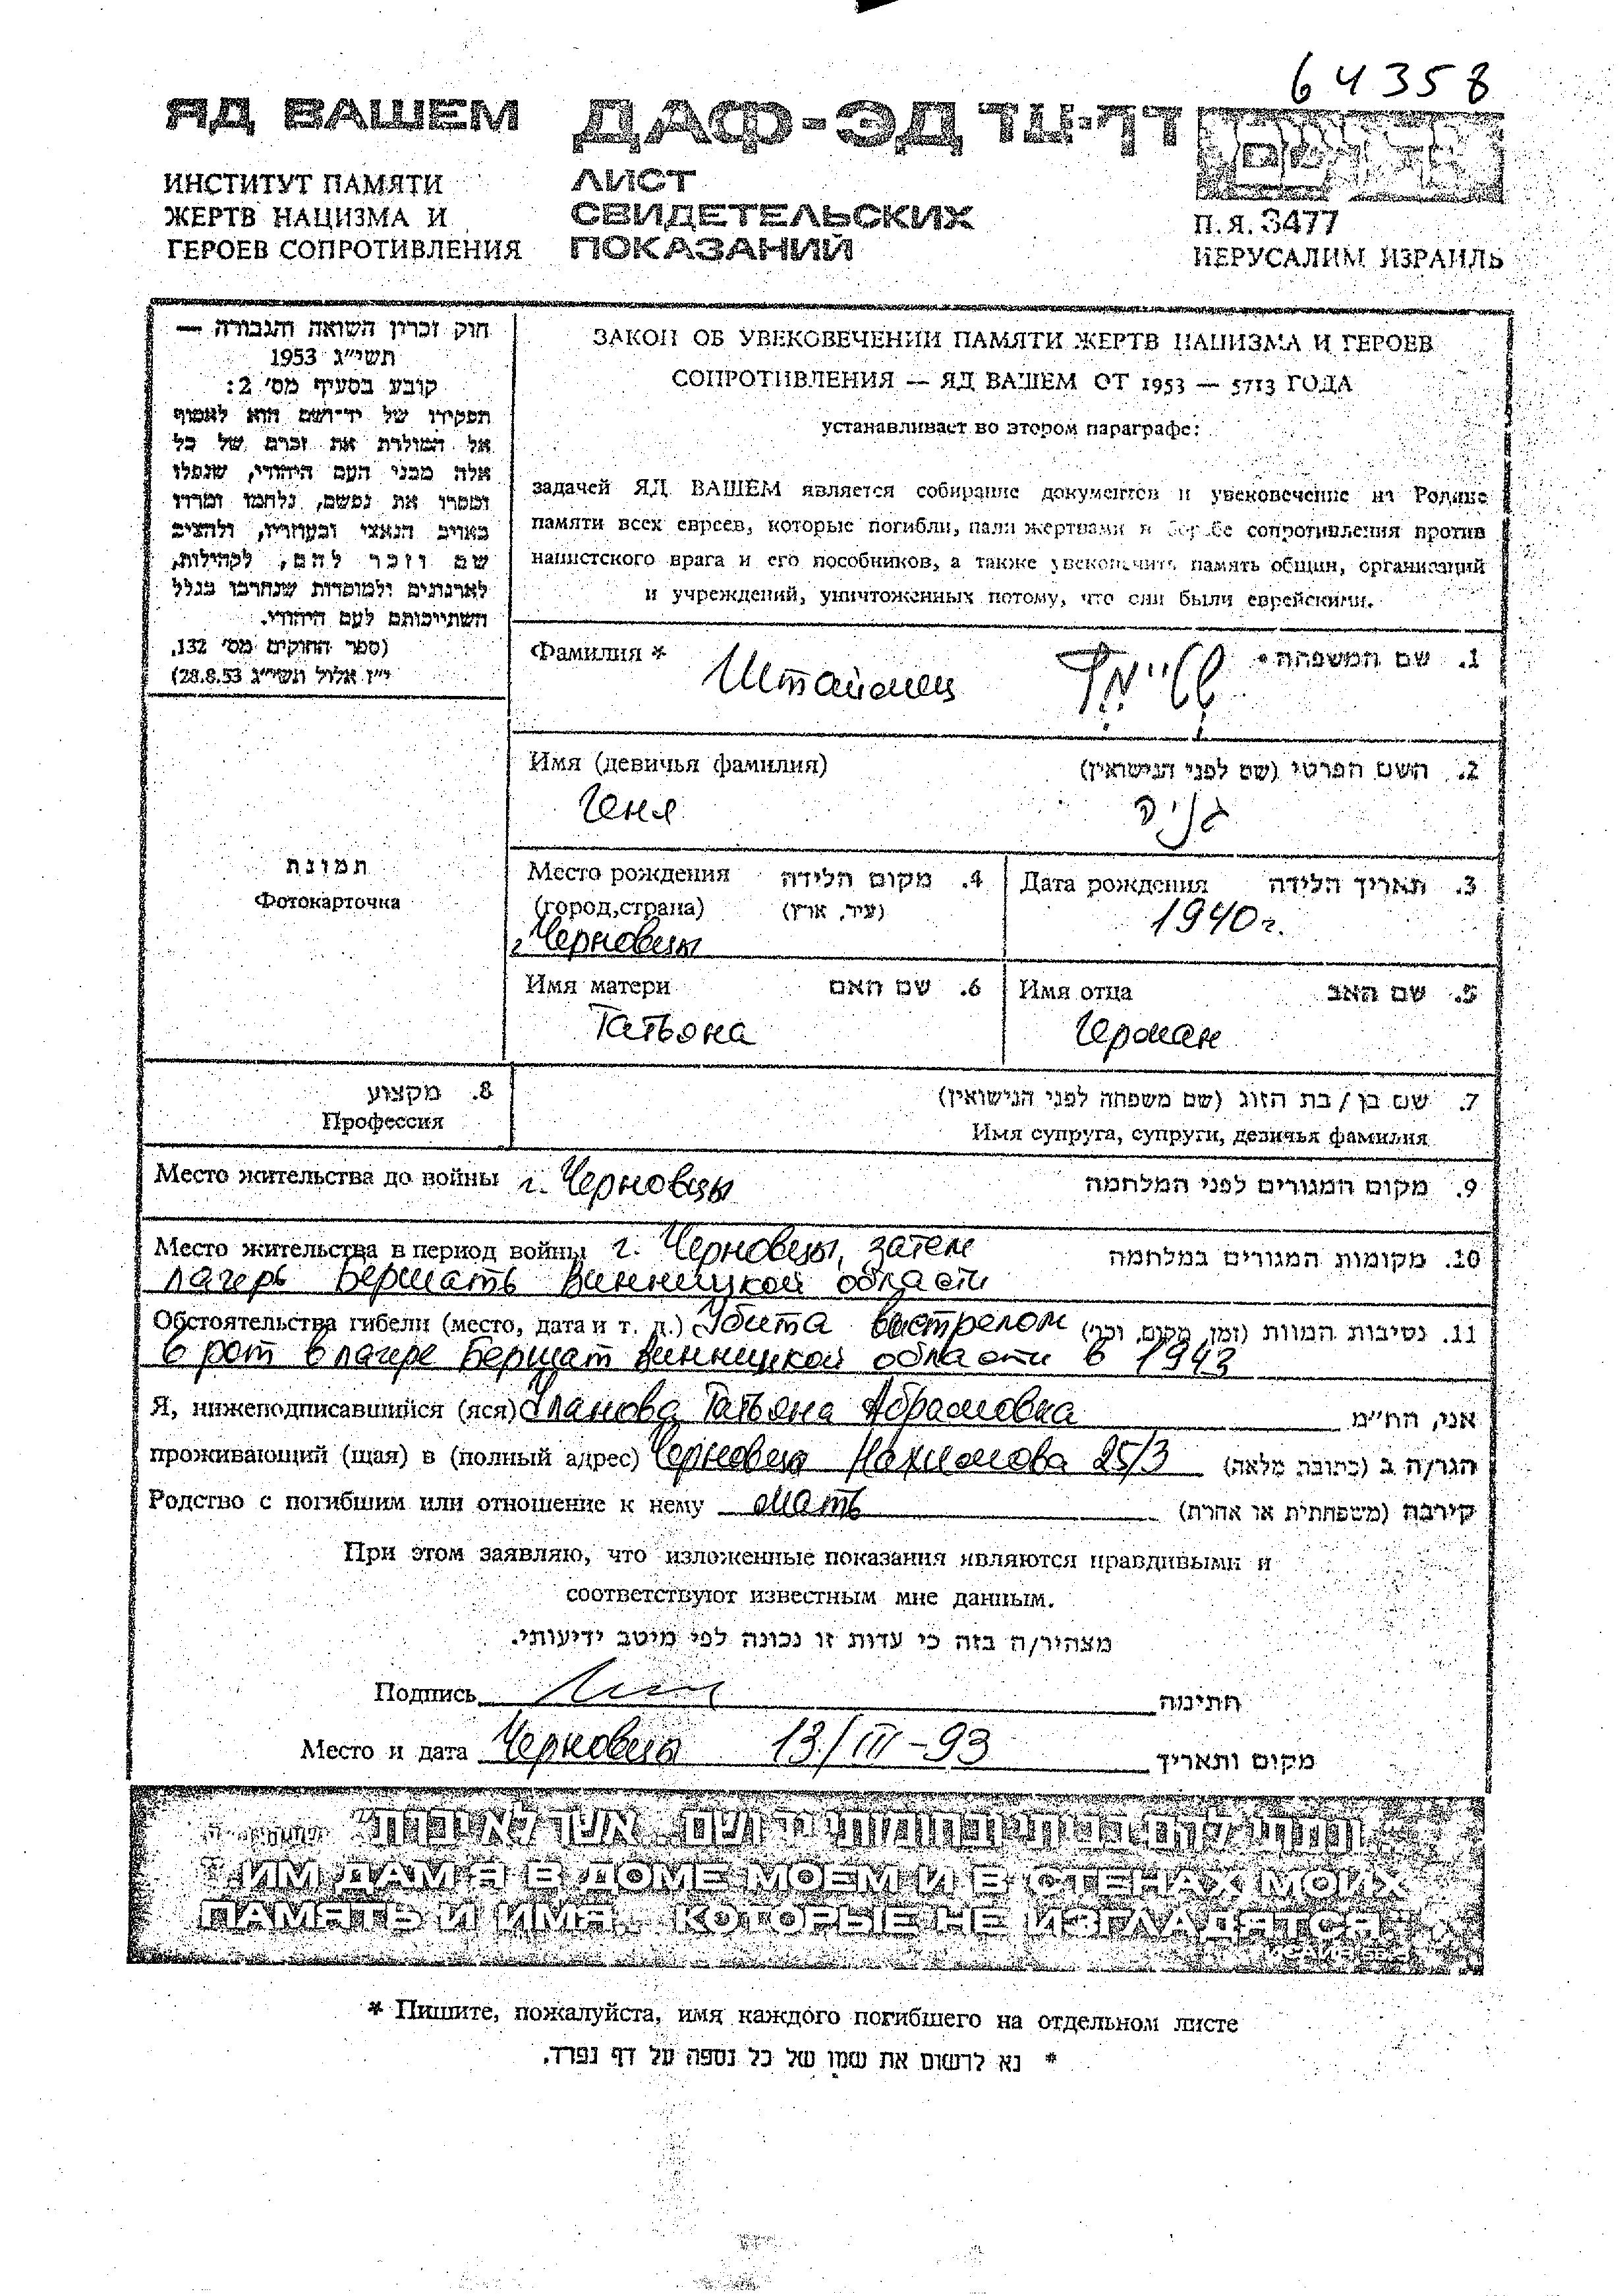 64358
ЯД ВАШЕМ
ДАФ-ЭД דף-עד
ИНСТИТУТ ПАМЯТИ
ЖЕРТВ НАЦИЗМА И
ГЕРОЕВ СОПРОТИВЛЕНИЯ
ЛИСТ
СВИДЕТЕЛЬСКИХ
ПОКАЗАНИЙ
П.Я. 3477
ИЕРУСАЛИМ ИЗРАИЛЬ
חוק זכרון השואה והגבורה —
תשי״ג 1953
קובע בסעיף מס׳ 2:
תפקידו של יד־ושם הוא לאסוף
אל המולדת את זכרם של כל
אלה מבני העם היהודי, שנפלו
ומסרו את נפשם, נלחמו ומרדו
באויב הנאצי ובעוזריו, ולהציב
שם וזכר להם, לקהילות,
לארגונים ולמוסדות שנחרבו בגלל
השתייכותם לעם היהודי.
(ספר החוקים מס׳ 132,
י״ז אלול תשי״ג 28.8.53)
ЗАКОН ОБ УВЕКОВЕЧЕНИИ ПАМЯТИ ЖЕРТВ НАЦИЗМА И ГЕРОЕВ
СОПРОТИВЛЕНИЯ — ЯД ВАШЕМ ОТ 1953 — 5713 ГОДА
устанавливает во втором параграфе:
задачей ЯД ВАШЕМ является собирание документов и увековечение на Родине
памяти всех евреев, которые погибли, пали жертвами в борьбе сопротивления против
нацистского врага и его пособников, а также увековечить память общин, организаций
и учреждений, уничтоженных потому, что они были еврейскими.
Фамилия * Штаймец 1. שם המשפחה *
Имя (девичья фамилия) 2. השם הפרטי (שם לפני הנישואין)
Геня גניה
תמונת
Фотокарточка
Место рождения 4. מקום הלידה
(город, страна) (עיר, ארץ)
г. Черновцы
Дата рождения 3. תאריך הלידה
1940 г.
Имя матери 6. שם האם
Татьяна
Имя отца 5. שם האב
Герман
8. מקצוע
Профессия
7. שם בן / בת הזוג (שם משפחה לפני הנישואין)
Имя супруга, супруги, девичья фамилия
Место жительства до войны г. Черновцы 9. מקום המגורים לפני המלחמה
Место жительства в период войны г. Черновцы, затем 10. מקומות המגורים במלחמה
лагерь Бершать Винницкой области
Обстоятельства гибели (место, дата и т. д.) Убита выстрелом 11. נסיבות המוות (זמן, מקום, וכו׳)
в рот в лагере Бершат Винницкой области в 1943
Я, нижеподписавшийся (яся) Уланова Татьяна Абрамовна אני, הח״מ
проживающий (щая) в (полный адрес) Черновцы Нахимова 25/3 הגר/ה ב (כתובת מלאה)
Родство с погибшим или отношение к нему мать קירבה (משפחתית או אחרת)
При этом заявляю, что изложенные показания являются правдивыми и
соответствуют известным мне данным.
מצהיר/ה בזה כי עדות זו נכונה לפי מיטב ידיעותי.
Подпись חתימה
Место и дата Черновцы 13/III-93 מקום ותאריך
״ונתתי להם בביתי ובחומותי יד ושם... אשר לא יכרת״
"ИМ ДАМ Я В ДОМЕ МОЕМ И В СТЕНАХ МОИХ
ПАМЯТЬ И ИМЯ... КОТОРЫЕ НЕ ИЗГЛАДЯТСЯ."
* Пишите, пожалуйста, имя каждого погибшего на отдельном листе
* נא לרשום את שמו של כל נספה על דף נפרד.